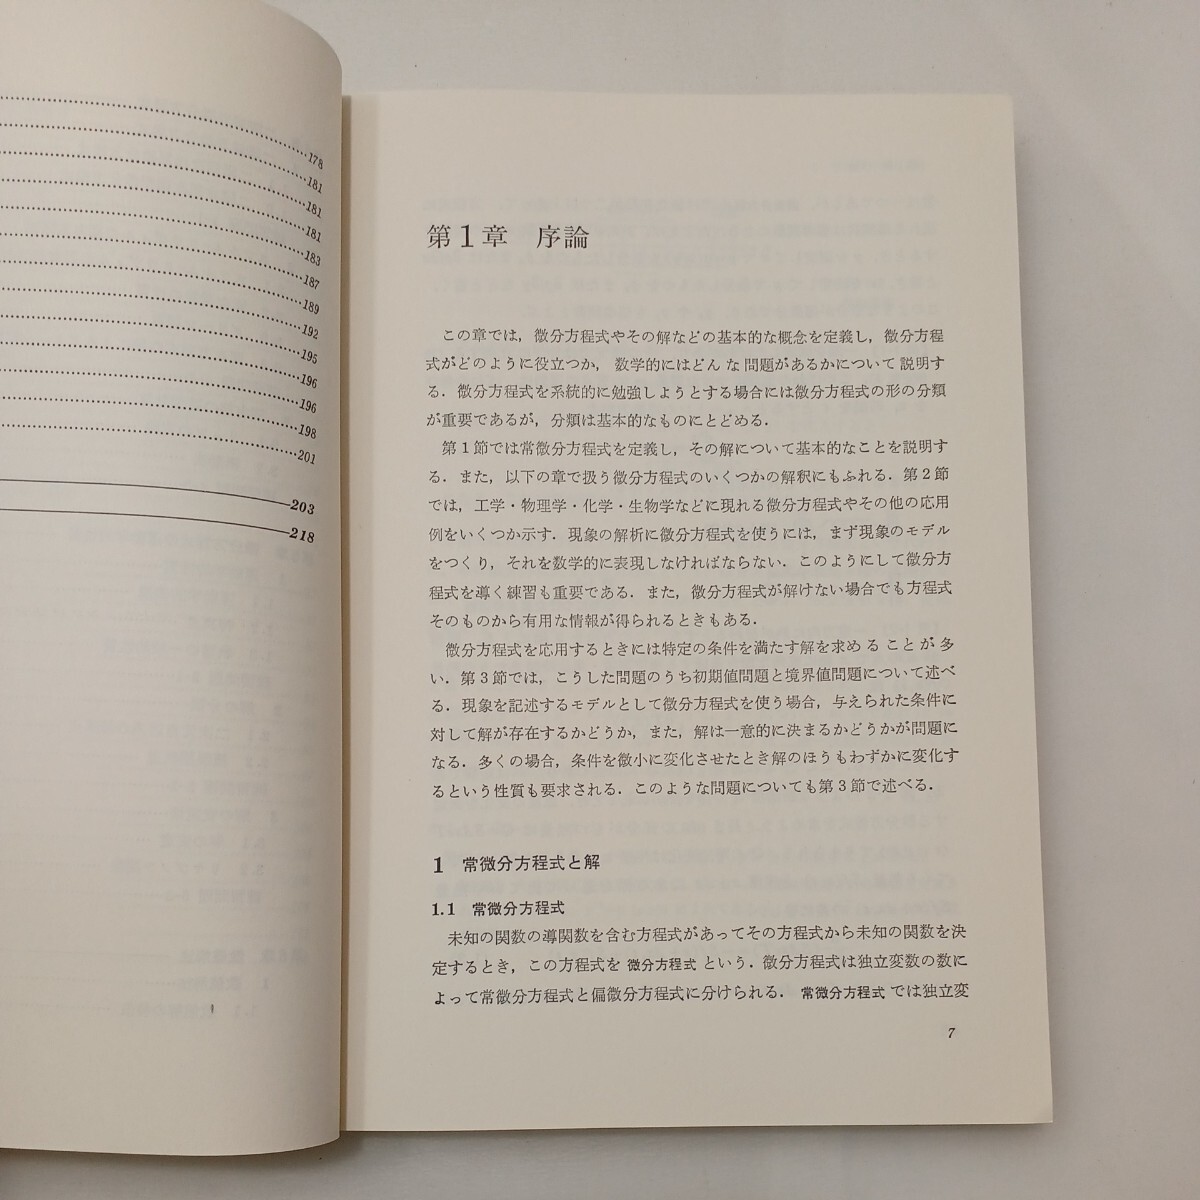 178
181
181
181
183
187
189
192
195
196
196
198
201
203
218
第1章 序論
この章では,微分方程式やその解などの基本的な概念を定義し,微分方程
式がどのように役立つか,数学的にはどんな問題があるかについて説明す
る.微分方程式を系統的に勉強しようとする場合には微分方程式の形の分類
が重要であるが,分類は基本的なものにとどめる.
第1節では常微分方程式を定義し,その解について基本的なことを説明す
る.また,以下の章で扱う微分方程式のいくつかの解釈にもふれる.第2節
では,工学・物理学・化学・生物学などに現れる微分方程式やその他の応用
例をいくつか示す.現象の解析に微分方程式を使うには,まず現象のモデル
をつくり,それを数学的に表現しなければならない.このようにして微分方
程式を導く練習も重要である.また,微分方程式が解けない場合でも方程式
そのものから有用な情報が得られるときもある.
微分方程式を応用するときには特定の条件を満たす解を求めることが多
い.第3節では,こうした問題のうち初期値問題と境界値問題について述べ
る.現象を記述するモデルとして微分方程式を使う場合,与えられた条件に
対して解が存在するかどうか,また,解は一意的に決まるかどうかが問題に
なる.多くの場合,条件を微小に変化させたとき解のほうもわずかに変化す
るという性質も要求される.このような問題についても第3節で述べる.
1 常微分方程式と解
1.1 常微分方程式
未知の関数の導関数を含む方程式があってその方程式から未知の関数を決
定するとき,この方程式を 微分方程式 という.微分方程式は独立変数の数に
よって常微分方程式と偏微分方程式に分けられる. 常微分方程式 では独立変
7